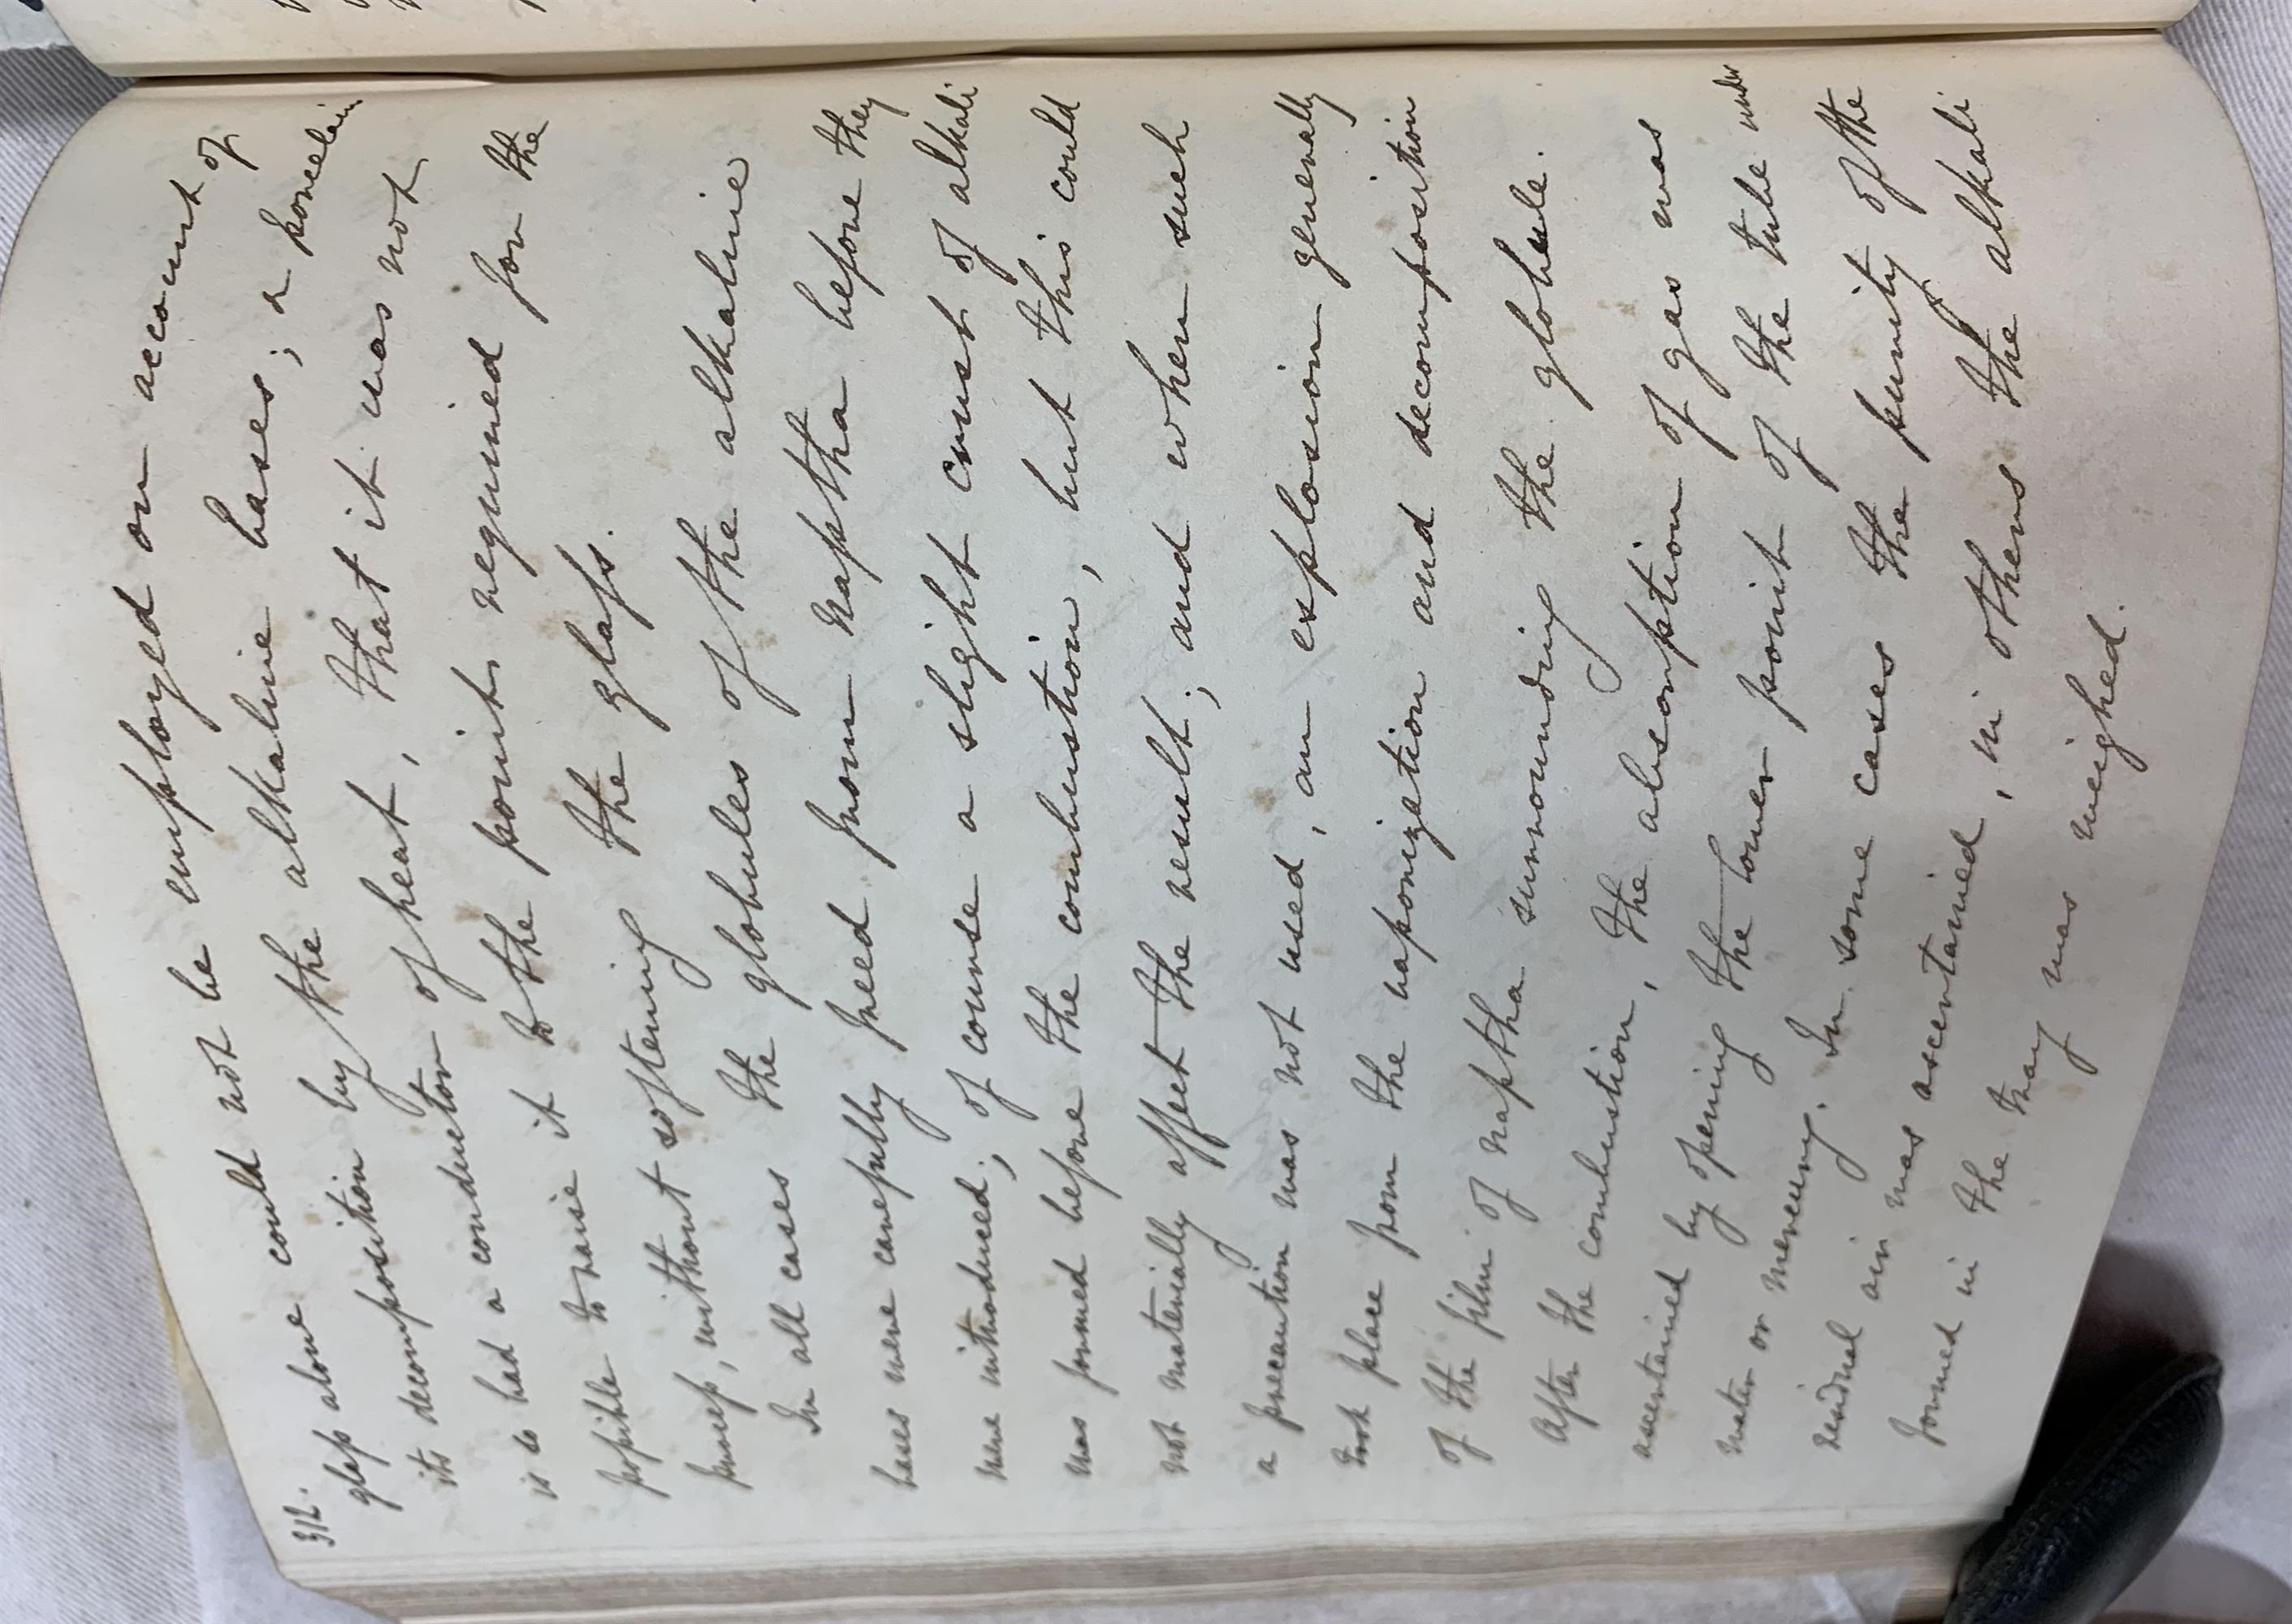 312.
glass alone could not be employed on account of
its decomposition by the alkaline bases; & porcelain
is so bad a conductor of heat, that it was not
possible to raise it to the point required for the
process, without softening the glass.
In all cases the globules of the alkaline
bases were carefully freed from naptha before they
were introduced; of course a slight crust of alkali
was formed before the combustion, but this could
not materially affect the result; and when such
a precaution was not used, an explosion generally
took place from the vaporization and decomposition
of the film of naptha surrounding the globule.
After the combustion, the absorption of gas was
ascertained by opening the lower point of the tube under
water or mercury. In some cases the purity of the
residual air was ascertained, in others the alkali
formed in the tray was weighed.